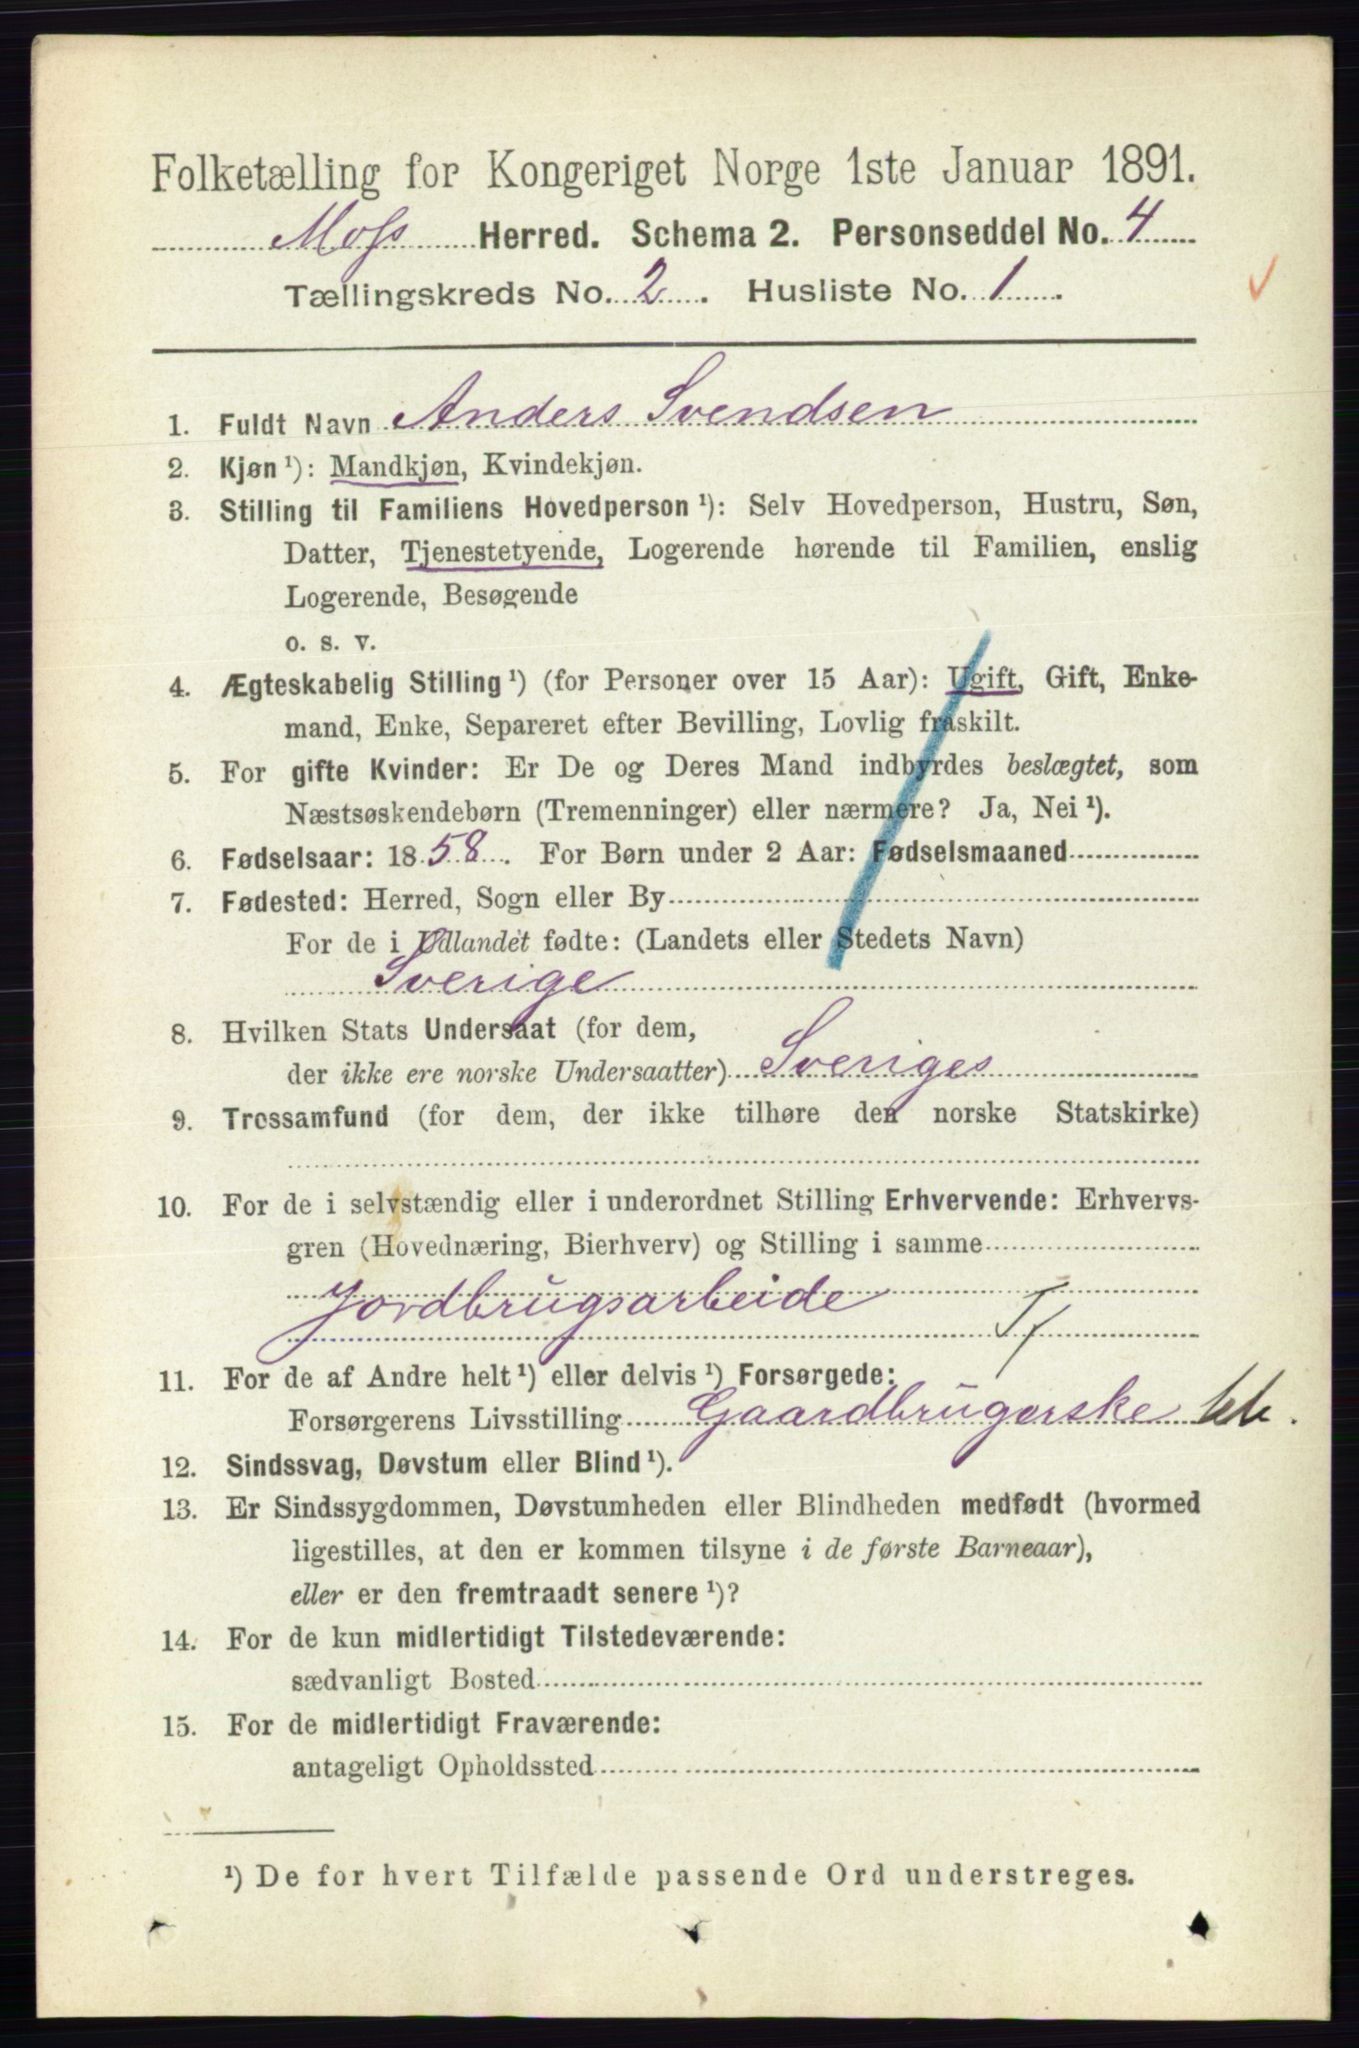 Folketælling for Kongeriget Norge 1ste Januar 1891.
Moss Herred. Schema 2. Personseddel No. 4
Tællingskreds No. 2. Husliste No. 1.
1. Fuldt Navn Anders Svendsen
2. Kjøn ¹): Mandkjøn, Kvindekjøn.
3. Stilling til Familiens Hovedperson ¹): Selv Hovedperson, Hustru, Søn,
Datter, Tjenestetyende, Logerende hørende til Familien, enslig
Logerende, Besøgende
o. s. v.
4. Ægteskabelig Stilling ¹) (for Personer over 15 Aar): Ugift, Gift, Enke-
mand, Enke, Separeret efter Bevilling, Lovlig fraskilt.
5. For gifte Kvinder: Er De og Deres Mand indbyrdes beslægtet, som
Næstsøskendebørn (Tremenninger) eller nærmere? Ja, Nei ¹).
6. Fødselsaar: 1858. For Børn under 2 Aar: Fødselsmaaned
7. Fødested: Herred, Sogn eller By
For de i Udlandet fødte: (Landets eller Stedets Navn)
Sverige
8. Hvilken Stats Undersaat (for dem,
der ikke ere norske Undersaatter) Sveriges
9. Trossamfund (for dem, der ikke tilhøre den norske Statskirke)
10. For de i selvstændig eller i underordnet Stilling Erhvervende: Erhvervs-
gren (Hovednæring, Bierhverv) og Stilling i samme
Jordbrugsarbeide
11. For de af Andre helt ¹) eller delvis ¹) Forsørgede:
Forsørgerens Livsstilling Gaardbrugerske
12. Sindssvag, Døvstum eller Blind ¹).
13. Er Sindssygdommen, Døvstumheden eller Blindheden medfødt (hvormed
ligestilles, at den er kommen tilsyne i de første Barneaar),
eller er den fremtraadt senere ¹)?
14. For de kun midlertidigt Tilstedeværende:
sædvanligt Bosted
15. For de midlertidigt Fraværende:
antageligt Opholdssted
¹) De for hvert Tilfælde passende Ord understreges.